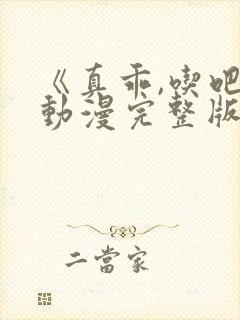 《真乖,喫吧
動漫完整版
二當家